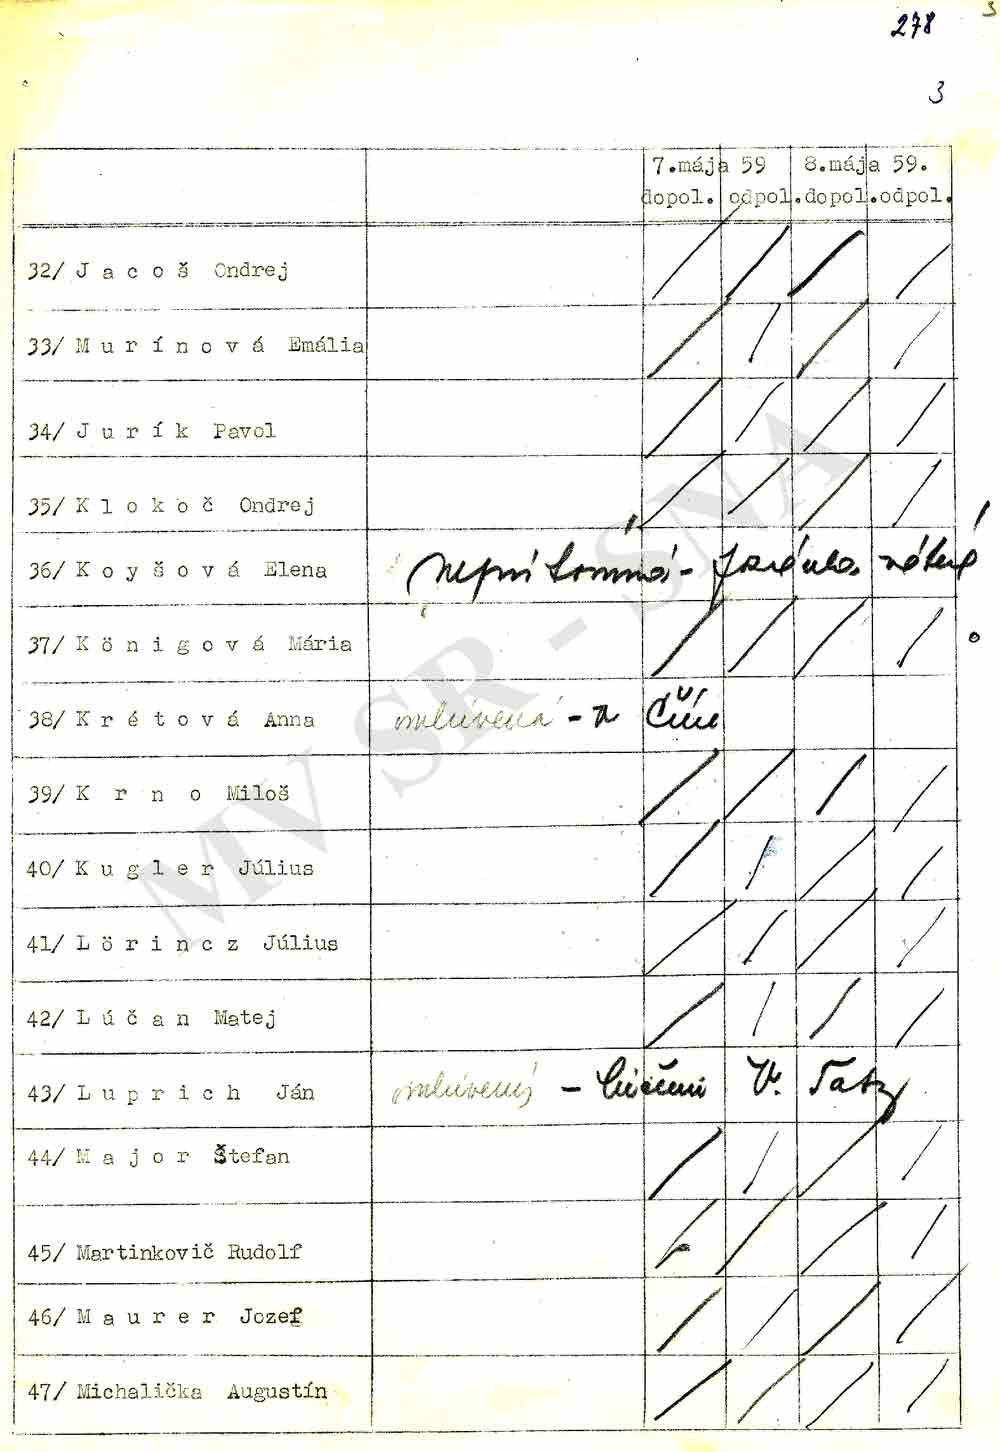 3
278
3
7.mája 59 8.mája 59.
dopol. odpol.dopol.odpol.
32/ J a c o š Ondrej
33/ M u r í n o v á Emália
34/ J u r í k Pavol
35/ K l o k o č Ondrej
36/ K o y š o v á Elena neprítomná -
37/ K ö n i g o v á Mária
38/ K r é t o v á Anna omluvená - v Číne
39/ K r n o Miloš
40/ K u g l e r Július
41/ L ö r i n c z Július
42/ L ú č a n Matej
43/ L u p r i c h Ján omluvený - liečení V. Tatry
44/ M a j o r Štefan
45/ Martinkovič Rudolf
46/ M a u r e r Jozef
47/ Michalička Augustín
MV SR - SNA